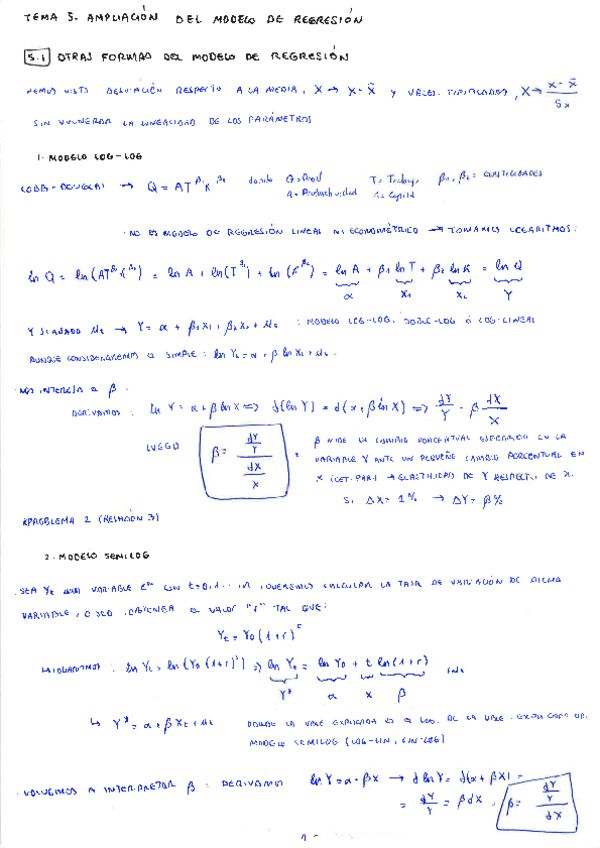 TEMA 5. AMPLIACIÓN DEL MODELO DE REGRESIÓN
5.1 OTRAS FORMAS DEL MODELO DE REGRESIÓN
HEMOS VISTO DESVIACIÓN RESPECTO A LA MEDIA, X → X - X̄ Y VBLES. TIPIFICADAS, X → (X - X̄)/Sx
SIN VULNERAR LA LINEALIDAD DE LOS PARÁMETROS
1. MODELO LOG-LOG
COBB-DOUGLAS → Q = AT^β₁ K^β₂ donde Q = Prod T = Trabajo β₁, β₂ = ELASTICIDADES
A = Productividad K = Capital
· NO ES MODELO DE REGRESIÓN LINEAL NI ECONOMÉTRICO → TOMAMOS LOGARITMOS:
ln Q = ln (AT^β₁ K^β₂) = ln A + ln (T^β₁) + ln (K^β₂) = ln A + β₁ ln T + β₂ ln K = ln Q
α X₁ X₂ Y
Y SUMANDO ut → Y = α + β₁X₁ + β₂X₂ + ut : MODELO LOG-LOG, DOBLE-LOG Ó LOG-LINEAL
AUNQUE CONSIDERAREMOS EL SIMPLE: ln Yt = α + β ln Xt + ut.
· NOS INTERESA EL β.
DERIVAMOS: ln Y = α + β ln X ⟹ d(ln Y) = d(α + β ln X) ⟹ dY/Y = β dX/X
LUEGO β = (dY/Y)/(dX/X) = β MIDE EL CAMBIO PORCENTUAL ESPERADO EN LA
VARIABLE Y ANTE UN PEQUEÑO CAMBIO PORCENTUAL EN
X (CET. PAR.) → ELASTICIDAD DE Y RESPECTO DE X.
SI ΔX = 1% → ΔY = β%
PROBLEMA 2 (RELACIÓN 3)
2. MODELO SEMILOG
· SEA Yt UNA VARIABLE CON t = 0, 1 ... QUEREMOS CALCULAR LA TASA DE VARIACIÓN DE DICHA
VARIABLE, O SEA, OBTENER EL VALOR "r" TAL QUE:
Yt = Y₀ (1+r)^t
LOGARITMOS: ln Yt = ln (Y₀ (1+r)^t) ⟹ ln Yt = ln Y₀ + t ln (1+r)
Y* α X β
↳ Y* = α + β Xt + ut DONDE LA VBLE EXPLICADA ES EL LOG. DE LA VBLE.
MODELO SEMILOG (LOG-LIN, LIN-LOG)
· VOLVEMOS A INTERPRETAR β: DERIVAMOS ln Y = α + βX → d ln Y = d(α + βX) =
= dY/Y = β dX, β = (dY/Y)/dX
1 -